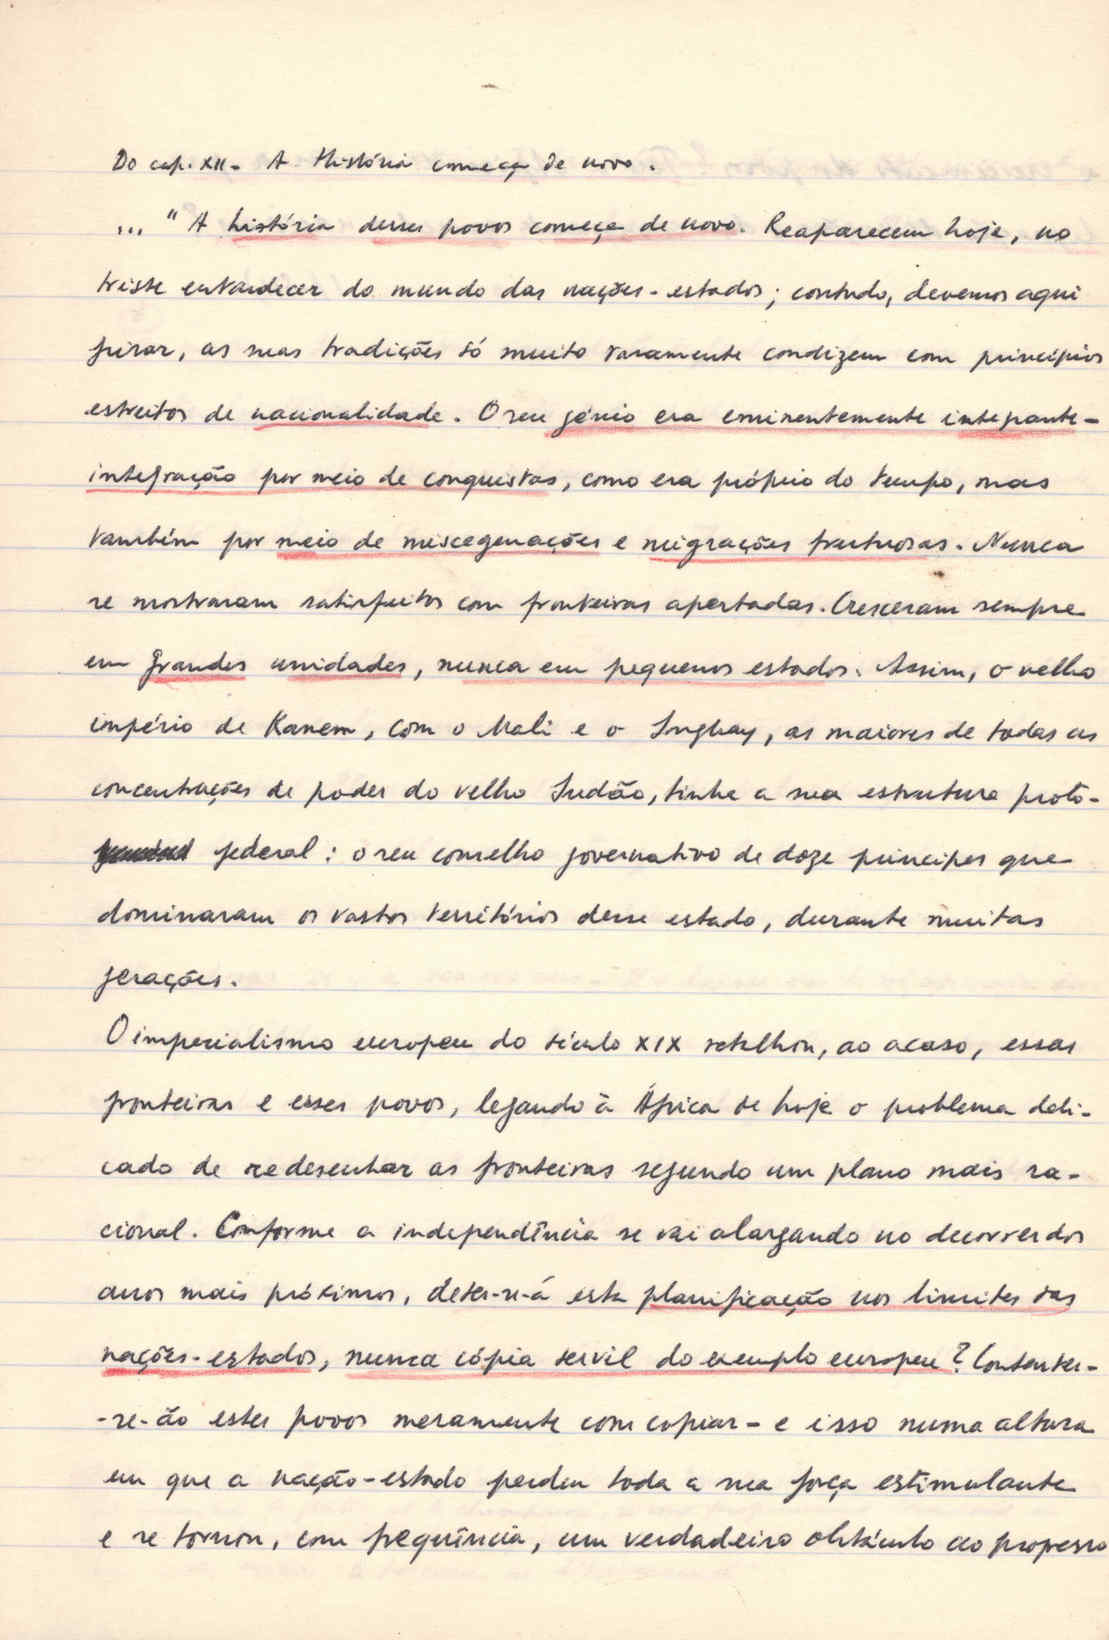 Do cap. XII - A História começa de novo.
... "A história desses povos começa de novo. Reaparecem hoje, no
triste entardecer do mundo das nações-estados; contudo, devemos aqui
frisar, as suas tradições só muito raramente condizem com princípios
estreitos de nacionalidade. O seu génio era eminentemente integrante -
integração por meio de conquistas, como era próprio do tempo, mas
também por meio de miscegenações e migrações frutuosas. Nunca
se mostraram satisfeitos com fronteiras apertadas. Cresceram sempre
em grandes unidades, nunca em pequenos estados. Assim, o velho
império de Kanem, com o Mali e o Songhay, as maiores de todas as
concentrações de poder do velho Sudão, tinha a sua estrutura proto-
federal: o seu conselho governativo de doze príncipes que
dominaram os vastos territórios desse estado, durante muitas
gerações.
O imperialismo europeu do século XIX retalhou, ao acaso, essas
fronteiras e esses povos, legando à África de hoje o problema deli-
cado de redesenhar as fronteiras segundo um plano mais ra-
cional. Conforme a independência se vai alargando no decorrer dos
anos mais próximos, deter-se-á esta planificação nos limites das
nações-estados, nunca cópia servil do exemplo europeu? Contentar-
-se-ão estes povos meramente com copiar - e isso numa altura
em que a nação-estado perdeu toda a sua força estimulante
e se tornou, com frequência, um verdadeiro obstáculo ao progresso